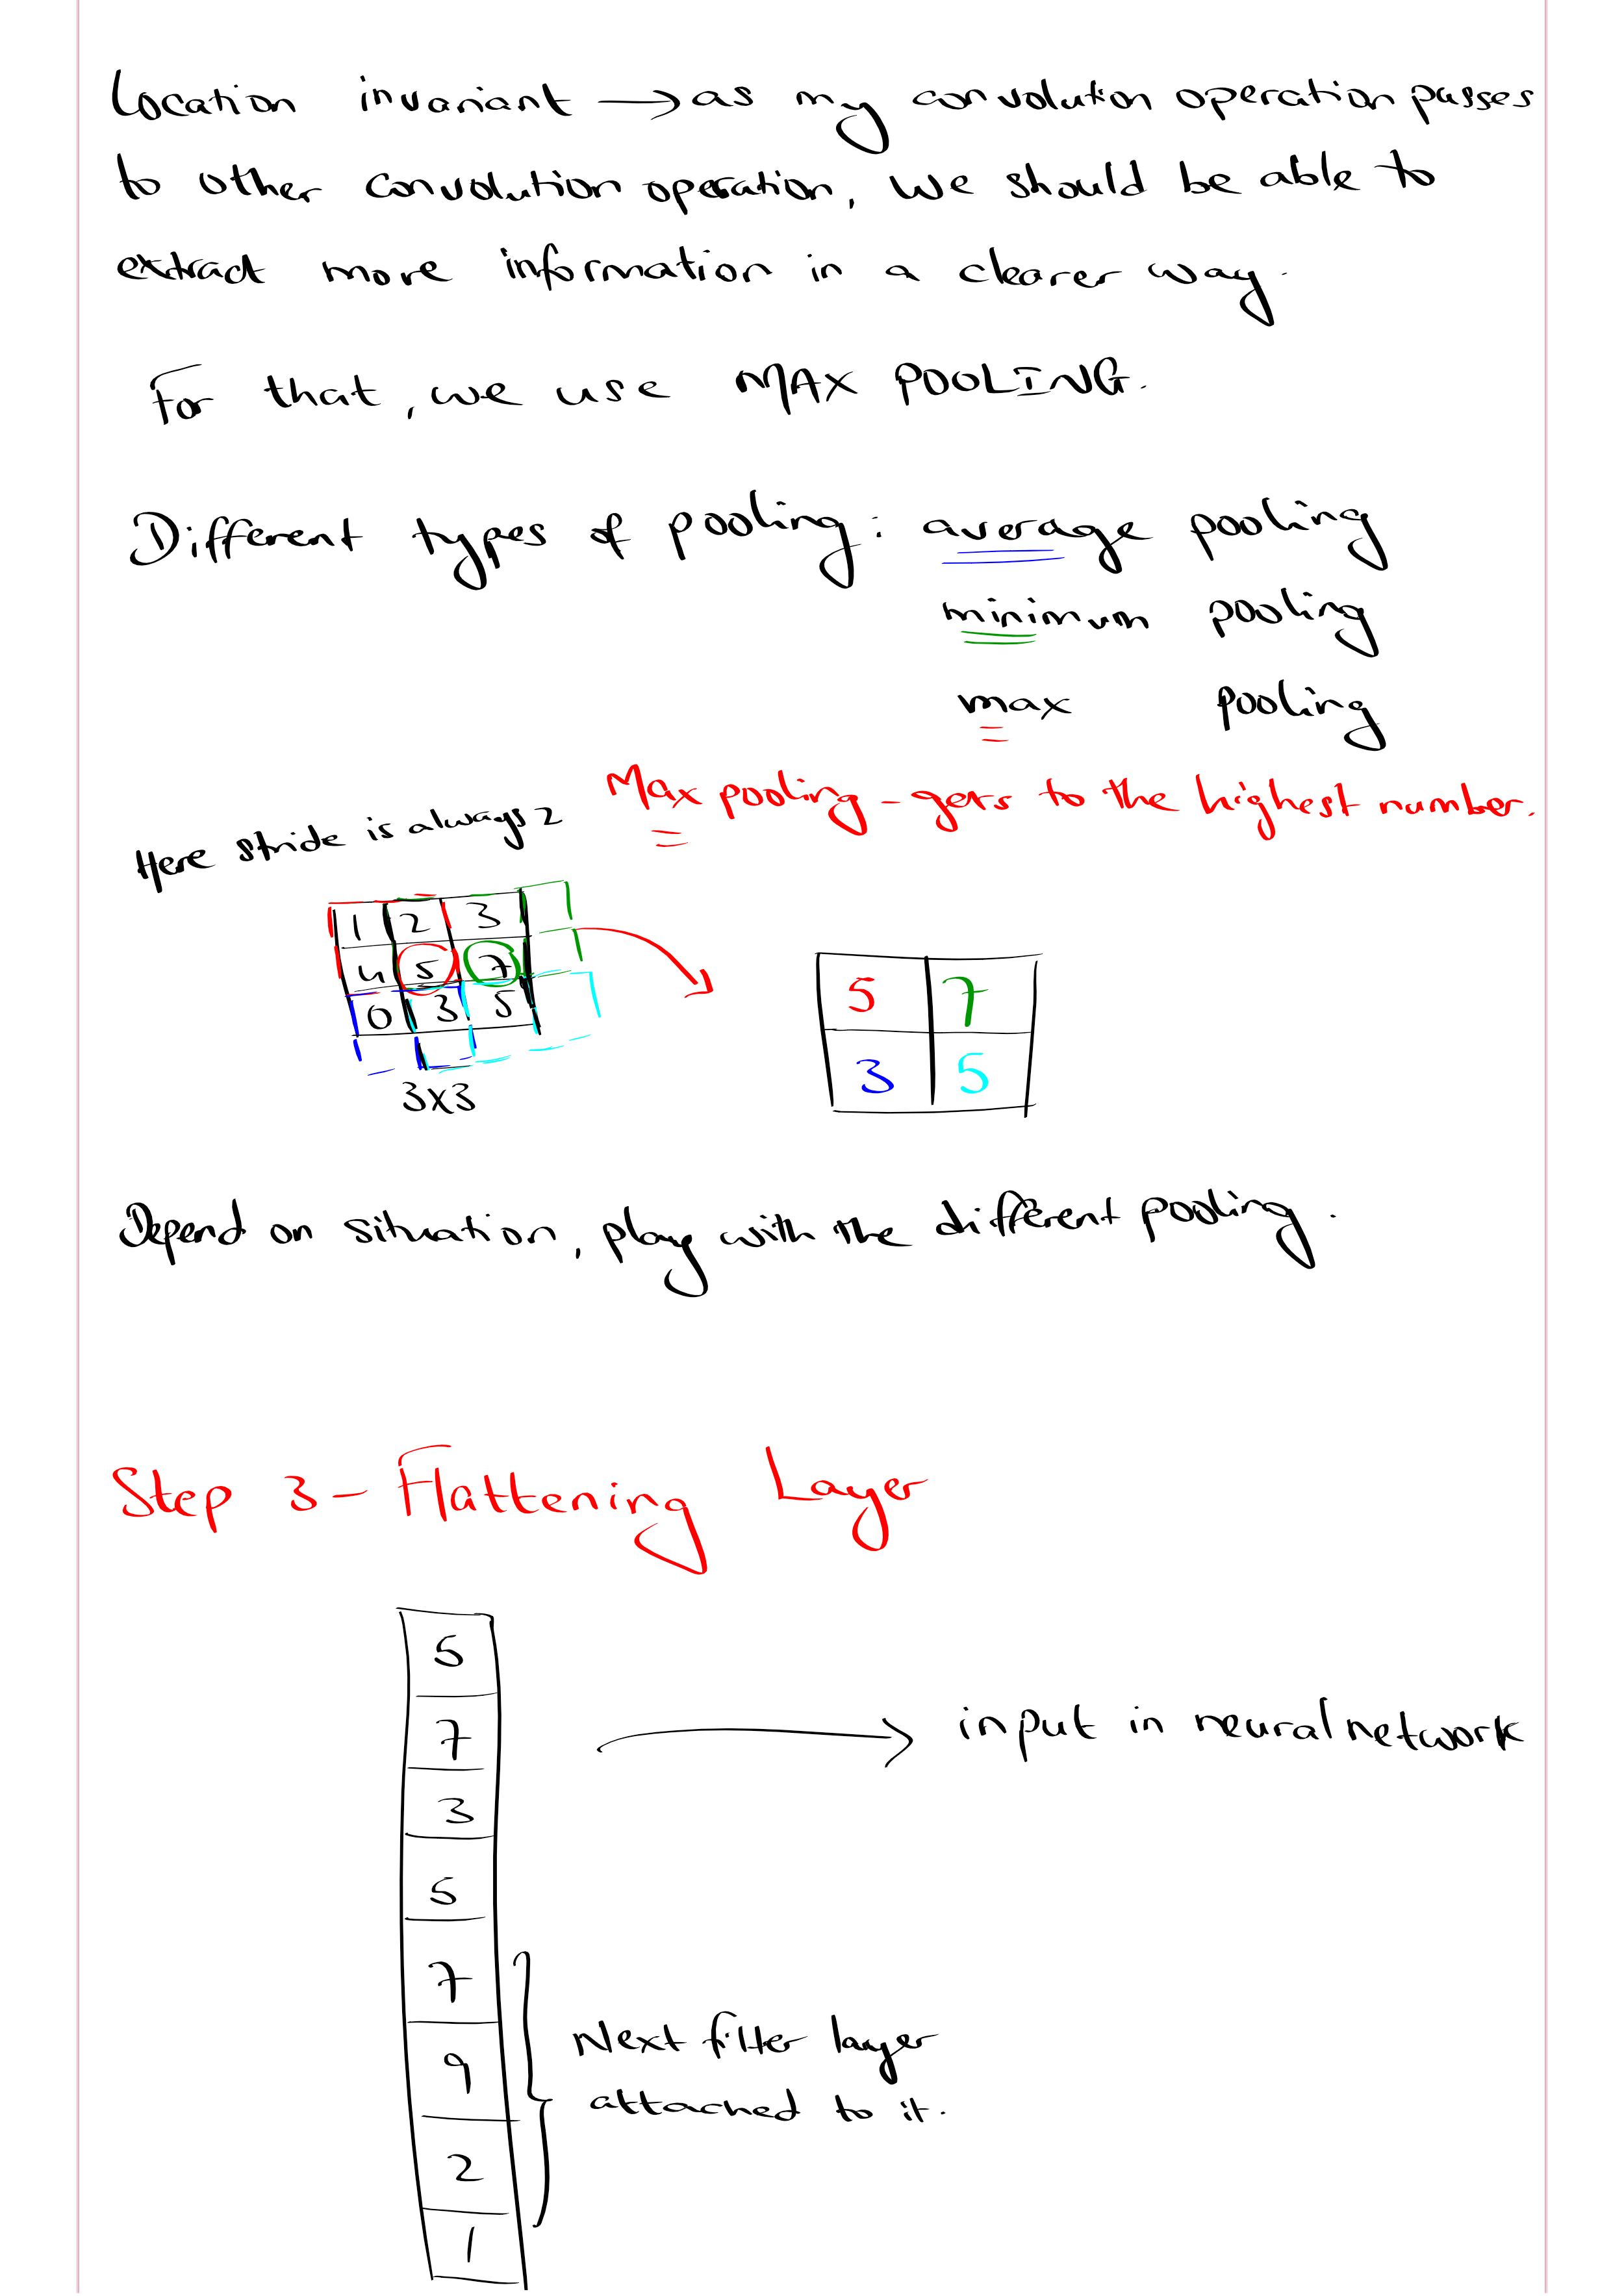 Location invariant → as my convolution operation passes
to other convolution operation, we should be able to
extract more information in a clearer way.
For that, we use MAX POOLING.
Different types of pooling: average pooling
minimum pooling
max pooling
Max pooling - gets to the highest number.
Here stride is always 2
1 2 3
4 5 7
0 3 5
3x3
5 7
3 5
Depend on situation, play with the different pooling.
Step 3 - Flattening Layer
5
7
→ input in neural network
3
5
7
9
Next filter layer
attached to it.
2
1